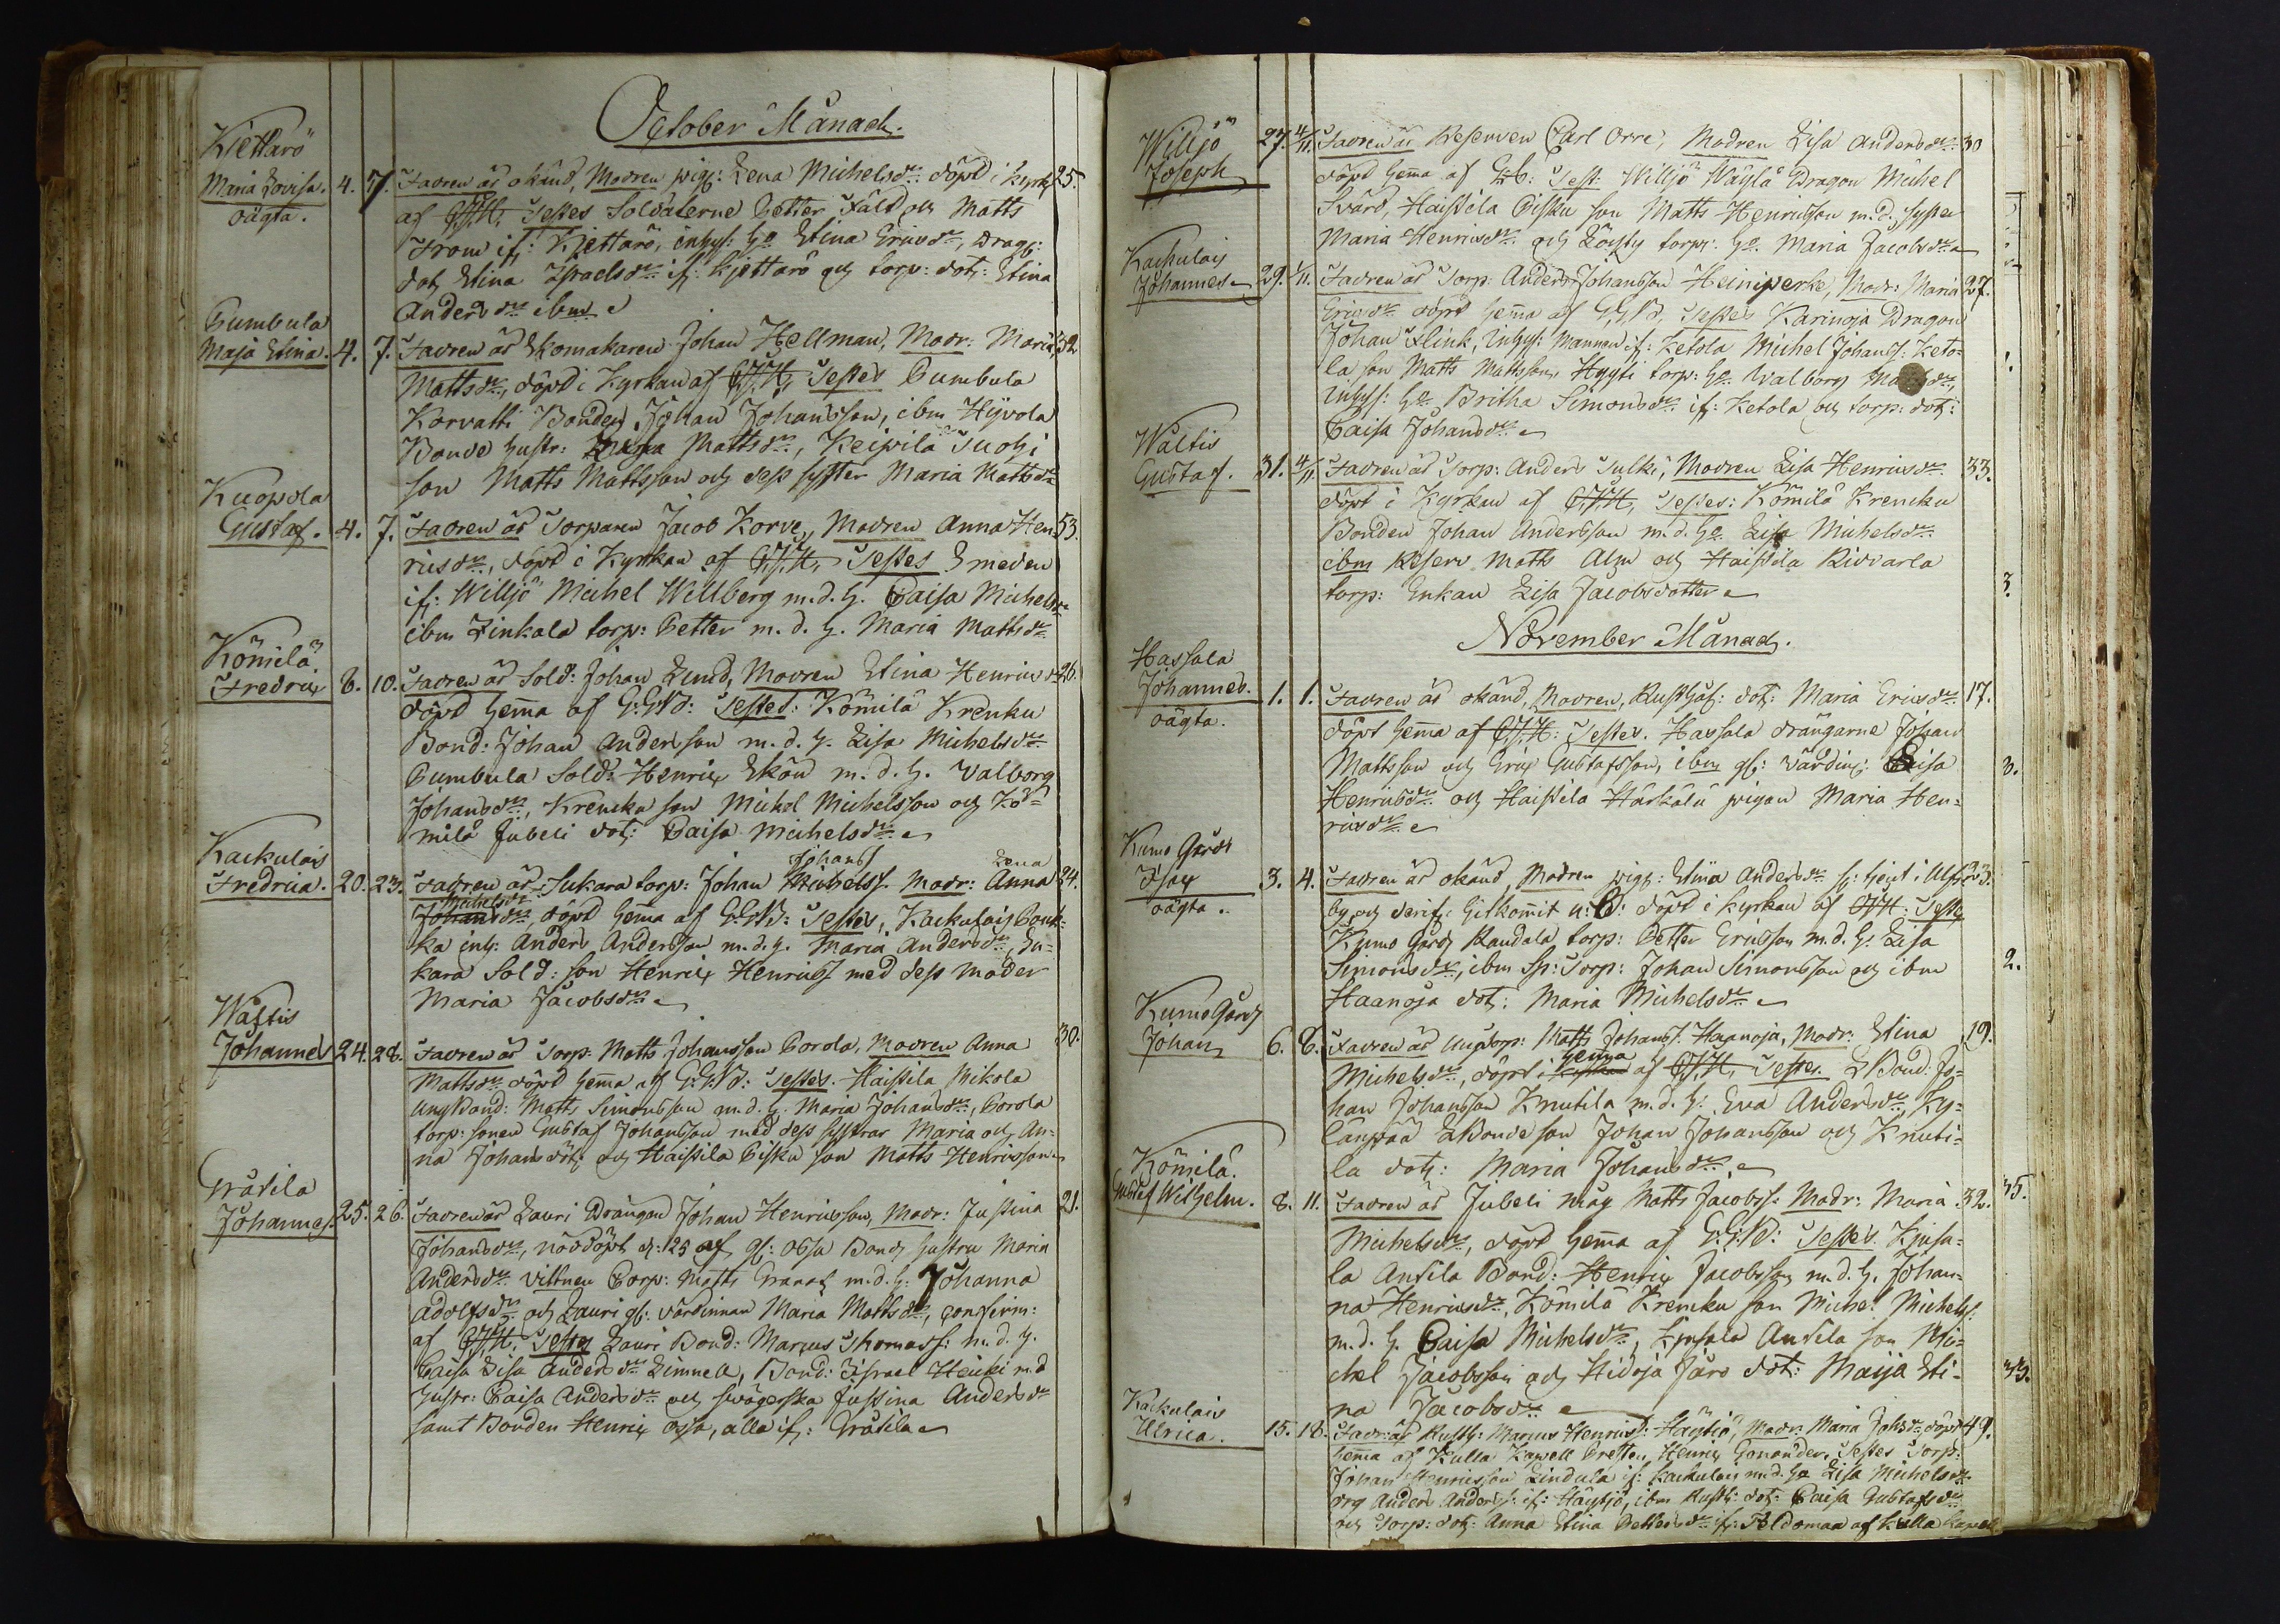 October Månad.
Kiettarö
Maria Lovisa. 4. 7. Fadren är okänd, Modren pig: Lena Michelsdr: döpt i Kyrk: 25.
oägta. af G.J.H. Testes Soldaterne Petter Fäld och Matts
From if: Kjettarö, inhys: hu Stina Ericsdr, Drag:
dot Stina Israelsdr if: Kjettarö och torp: dot: Stina
Andersdr ibm
Cumbula
Maja Stina. 4. 7. Fadren är Skomakaren Johan Hellman, Modr: Maria 32
Mattsdr, döpt i Kyrkan af G.J.H. Testes Cumbula
Korvatti Bonden Johan Johansson, ibm Hyvola
Bonde hustr: Maja Mattsdr, Keipilä
son Matts Mattsson och dess syster Maria Mattsdr
Kuopola
Gustaf. 4. 7. Fadren är Torparen Jacob Korve, Modren Anna Hen= 53.
ricsdr, döpt i Kyrkan af G.J.H. Testes Smeden
if: Willjö Michel Wellberg m.d.h. Caisa Michelsdr
ibm Linkala torp: Petter m.d.h. Maria Mattsdr
Kömilä
Fredric 8. 10. Fadren är Sold: Johan Lund, Modren Stina Henricsdr 26.
döpt hema af G.G.W: Testes: Kömilä Krenku
Bond: Johan Andersson m.d.h. Lisa Michelsdr
Cumbula Sold: Henric Skön m.d.h. Valborg
Johansdr, Krencku son Michel Michelsson och Kö=
milä Jubeli dot: Caisa Michelsdr
Kackulais
Johanss Lena
Fredrica. 20. 23. Fadren är Sukara torp: Johan Michelss. Modr: Anna 34.
Michelsdr
Johansdr, döpt hema af G.G.W: Testes, Kackulais
ka inh: Anders Andersson m.d.h. Maria Andersdr, Su=
kara Sold: son Henric Henricss med dess moder
Maria Jacobsdr
Wattis
Johannes 24. 28. Fadren är Torp: Matts Johansson Porola, Modren Anna 30.
Mattsdr döpt hema af G.G.W: Testes. Haistila Nikola
Ung Bond: Matts Simonsson m.d.h. Maria Johansdr, Porola
torp: sonen Gustaf Johansson med dess systrar Maria och An=
na Johansdöt och Haistila Pisku son Matts Henricsson
Gråtila
Johannes. 25. 26. Fadren är Lauri Drängen Johan Henricsson, Modr: Justina 21.
Johansdr, nöddöpt d: 125 af gl: Ossa Bond hustru Maria
Andersdr vittnen Corp: Matts Granat m.d.h. Johanna
Adolfsdr och Lauri gl: värdinnan Maria Mattsdr, confirm:
af G.J.H. Testes Lauri Bond: Marcus Thomass: m.d.h.
Caisa Lisa Andersdr Linnell, Bond: Israel Heicki m.d
hustr: Caisa Andersdr och swägerska Justina Andersdr
samt Bonden Henric Ossa, alla if: Gråtila
Willjö 27. 4/11. Fadren är Reserven Carl Orre, Modren Lisa Andersdr: 30
Joseph döpt hema af Test. Willjö Wäylä Dragon Michel
Svärd, Haistila Pisku son Matts Henricsson m.d. syster
Maria Henricsdr och torp: hu Maria Jacobsdr
Kackulais
Johannes 29. 1/11. Fadren är Torp: Anders Johansson Heiniperke, Modr: Maria 27.
Ericsdr döpt hema af G.G.W. Testes Karinoja Dragon
Johan Flink, Inhys: Mannen if: Ketola Michel Johanss: Keto=
la son Matts Mattsson, Hyyti torp: hu Walborg
Inhys: hu Britha Simonsdr if: Ketola och torp: dot:
Caisa Johansdr
Wattis
Gustaf. 31. 4/11 Fadren är Torp: Anders Sulki, Modren Lisa Henricsdr 33.
döpt i Kyrkan af G.J.H. Testes: Kömilä Krencku
Bonden Johan Andersson m.d.hu Lisa Michelsdr
ibm Reserv Matts Alm och Haistila Kivvarla
torp: Enkan Lisa Jacobsdotter 3
November Månad.
Hassala
Johannes. 1. 1. Fadren är okänd, Modren, Rusthåll: dot: Maria Ericsdr 17.
oägta. döpt hema af G.J.H: Testes. Hassala drängarne Johan
Mattsson och Eric Gustafsson, ibm gl: värdin: Caisa 3.
Henricsdr och Haistila Härkälä pigan Maria Hen=
ricsdr
Kumo Gård
Isac 3. 4. Fadren är okänd, Modren pig: Stina Andersdr 23.
oägta. by och derif: hitkomit döpt i Kyrkan af GJH: Testes
Kumo Gård Randala torp: Petter Ericsson m.d.h. Lisa
Simonsdr, ibm Sp: Torp: Johan Simonsson och ibm 2.
Haanoja dot: Maria Michelsdr
Kumo Gård
Johan 6. 8. Fadren är Matts Johanss: Haanoja, Modr: Stina 19.
hema
Michelsdr, döpt i Kyrkan af G.J.H. Testes. Bond: Jo=
han Johansson Knutila m.d.h: Eva Andersdr Ky=
länpää Bonde son Johan Johansson och Knuti=
la dot: Maria Johansdr
Kömilä.
Gustaf Wilhelm. 8. 11. Fadren är Jubeli måg Matts Jacobss: Modr: Maria 32. 35.
Michelsdr, döpt hema af G.G.W: Testes. Kjusa=
la Antila Bond: Henric Jacobsson m.d.h. Johan=
na Henricsdr, Kömilä Krencku son Michel Michelss:
m.d.h. Caisa Michelsdr, Kjusala Antila son Mi=
chel Jacobsson och Hidoja Järo dot: Maija Sti= 33.
na Jacobsdr
Kackulais
Ulrica. 15. 18. Fadr: är Rusth: Marcus Henricss: Häyhiö, Modr: Maria Johsdr döpt 49.
hema af Kulla Kapell Presten, Henric Gonander, Testes Torp:
Johan Henricsson Lindula if: Kackulais m.d. hu Lisa Michelsdr
drg Anders Anderss: if: Häyhiö, ibm Rusth: dot: Caisa Gustafsdr
och Torp: dot: Anna Stina Pettersdr if: Poldomaa af Kulla Kapell